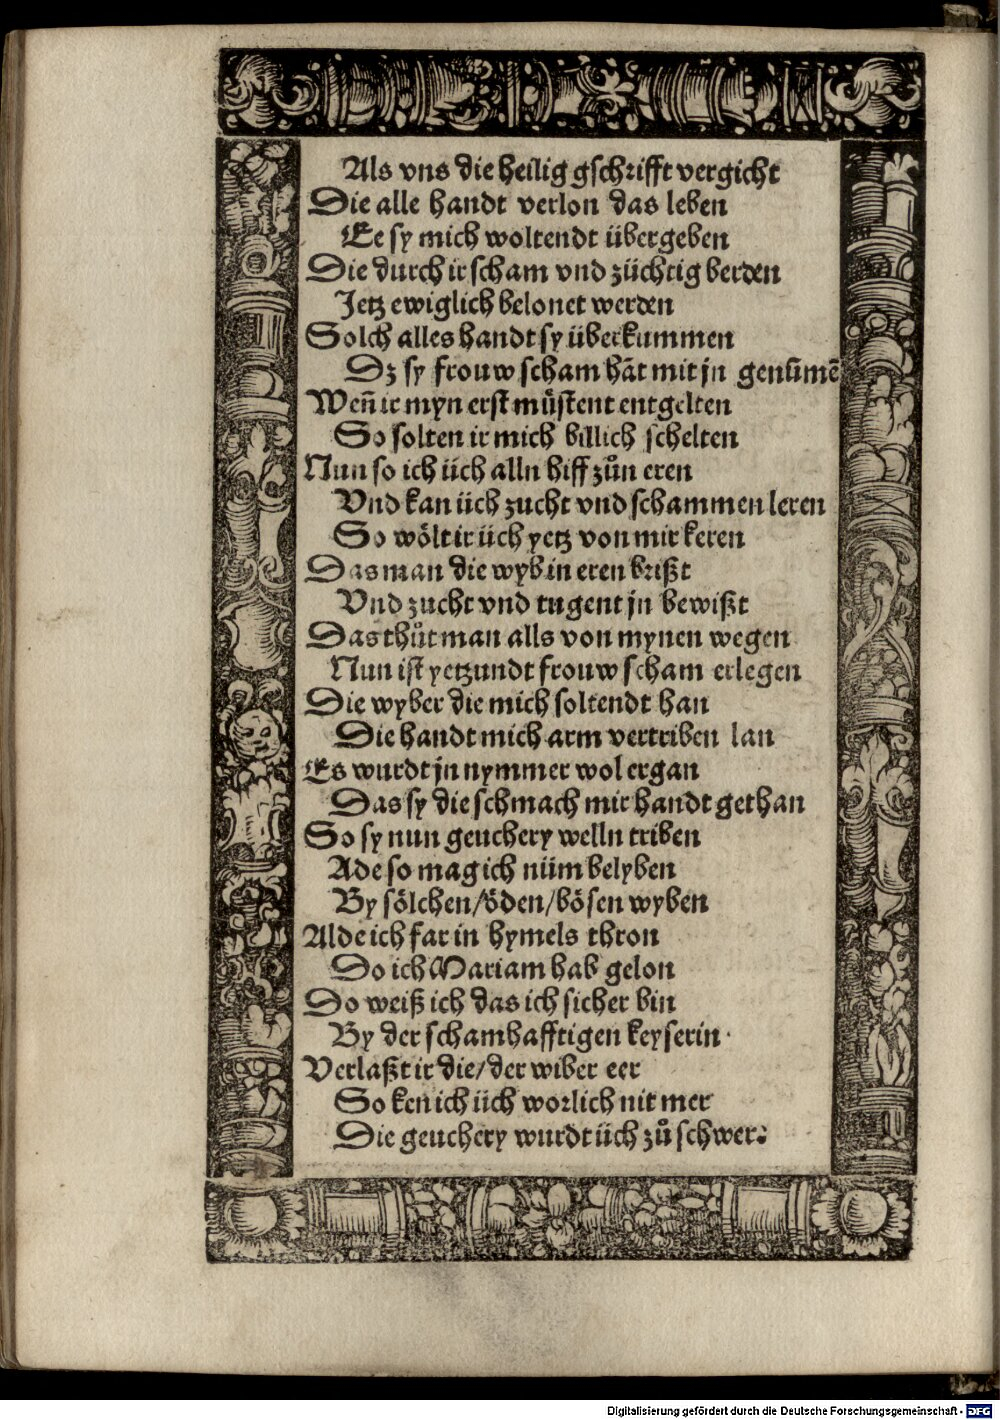 Als vns die heilig gschrifft vergicht
Die alle handt verlon das leben
Ee sy mich woltendt übergeben
Die durch ir scham vnd züchtig berden
Jetz ewiglich belonet werden
Solch alles handt sy überkummen
Dz sy frouw scham hāt mit jn genūmē
Wen̄ ir myn erst mu̇stent entgelten
So solten ir mich billich schelten
Nun so ich üch alln hiff zůn eren
Vnd kan üch zucht vnd schammen leren
So wölt ir üch yetz von mir keren
Das man die wyb in eren brißt
Vnd zucht vnd tugent jn bewißt
Das thůt man alls von mynen wegen
Nun ist yetzundt frouw scham erlegen
Die wyber die mich soltendt han
Die handt mich arm vertriben lan
Es wurdt jn nymmer wol ergan
Das sy die schmach mir handt gethan
So sy nun geuchery welln triben
Ade so mag ich nüm belyben
By sölchen/öden/bösen wyben
Alde ich far in hymels thron
Do ich Mariam hab gelon
Do weiß ich das ich sicher bin
By der schamhafftigen keyserin.
Verlaßt ir die/der wiber eer
So ken ich üch worlich nit mer
Die geuchery wurdt üch zů schwer.
Digitalisierung gefördert durch die Deutsche Forschungsgemeinschaft - DFG